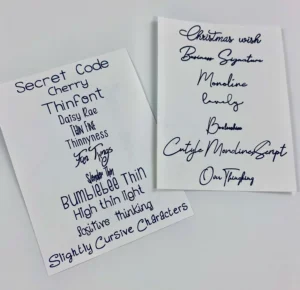 Secret Code
Cherry
Thinfont
Daisy Rae
Thin Line
Thinnyness
Fun Kings
Bumblebee Thin
High thin light
Positive thinking
Slightly Cursive Characters
Christmas wish
Business Signature
Monoline
lunely
Cutyle Monoline Script
Our Thinghing